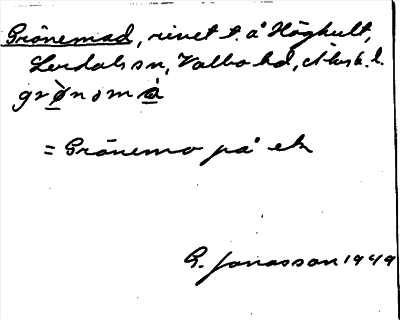 Grönemad, rivet t. å Höghult,
Lerdals sn, Valbo hd, Älvsb. l.
grø̀noma
= Grönemo på ek
G. Jonasson 1949